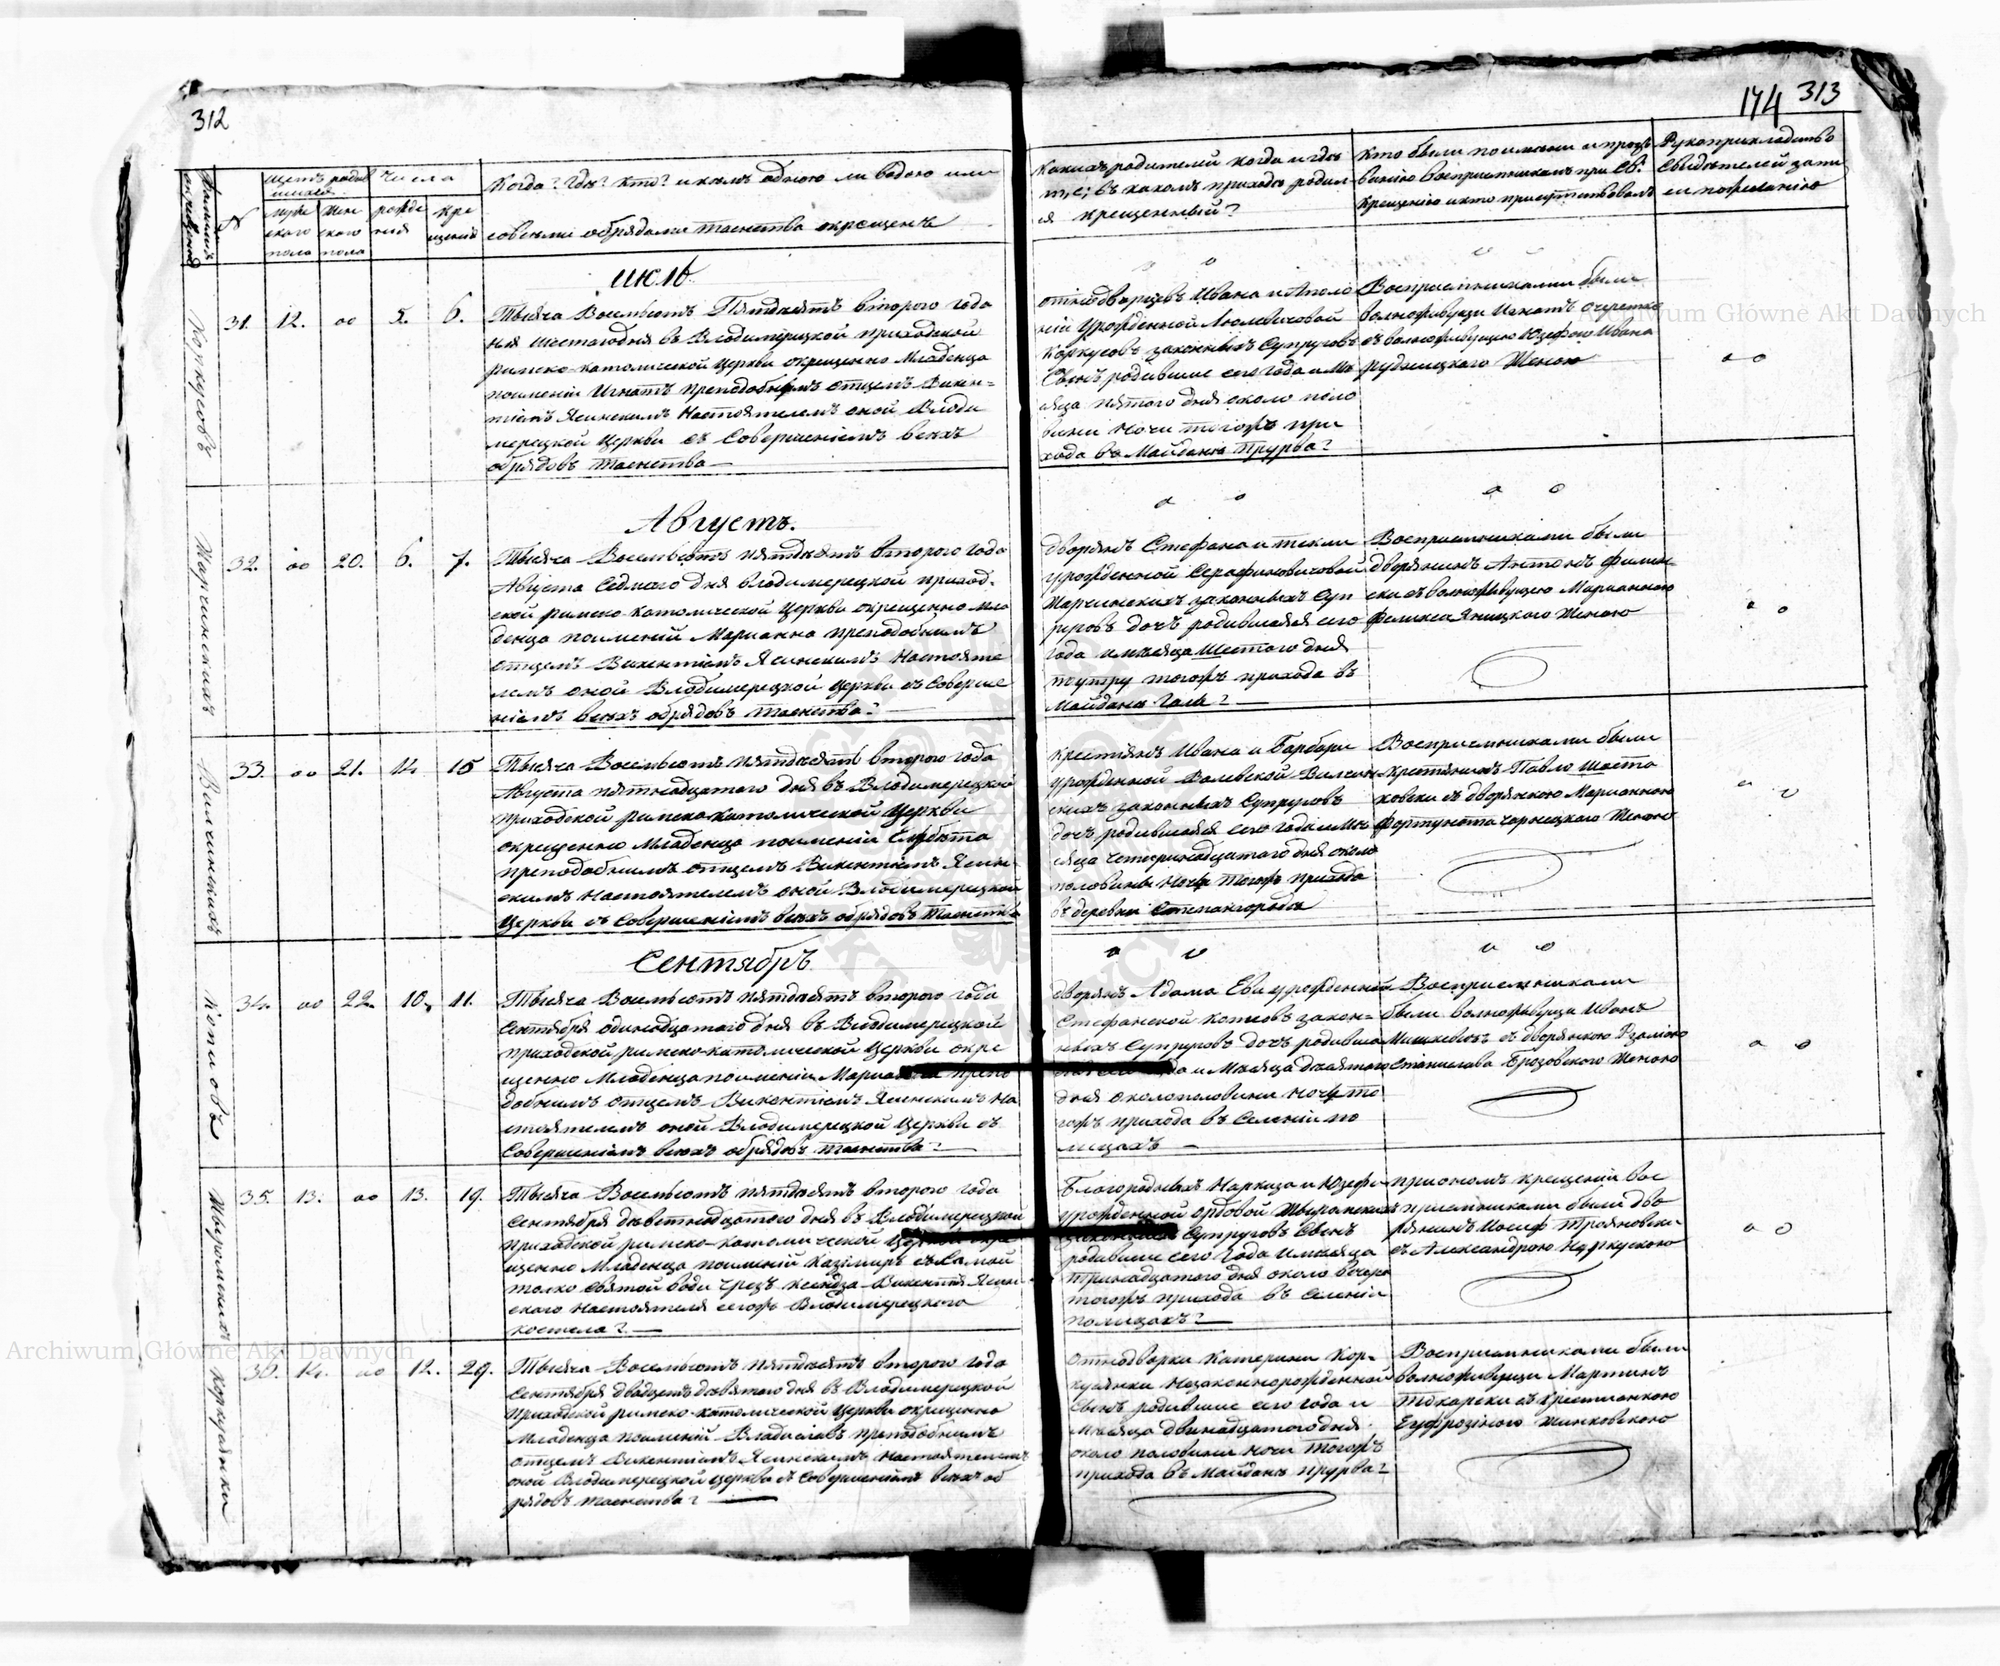 312
174 313
Фамилія
N
Щетъ родив
шихся
Числа
муже
ского
пола
жен
ского
пола
рожде
нія
кре
щенія
Когда? Где? Кто? и кемъ одною ли водою или
совсеми обрядами таинства окрещенъ
Какихъ родителей когда и где
т. е: въ какомъ приходе родил
ся крещенный?
Кто были по имени и прозы
ванію Воспріемниками при Св:
Крещеніи и кто присутствовалъ
Рукоприкладство
Свидетелей запи
си по желанію
Июль
Коркусовъ
31. 12. оо 5. 6.
Тысяча Восемьсотъ Пятдесятъ второго года
ня шестогодня въ Владимерецкой приходской
римско-католической Церкви окрещенно Младенца
поименій Игнатъ преподобнымъ отцемъ Викен=
тіемъ Ясинскимъ Настоятелемъ оной Влоди
мерецкой Церкви съ Совершеніемъ всехъ
обрядовъ таенства
отнодворцевъ Ивана и Аполо
ніи урожденной
Коркусовъ законныхъ Супруговъ
Сынъ родившіе сего года и Ме
сяца пятого дня около поло
вини ночи тогожъ при
хода въ Майдане Прурва?
Воспріемниками были
волножівущи Игнатъ
съ волножівущею Юзефою Ивана
Рудницкого Женою
оо
Августъ.
Марчинскихъ
32. оо 20. 6. 7.
Тысяча Восемьсотъ пятдесятъ второго года
Августа Седмого дня владимерецкой приход-
ской римско-католической Церкви окрещенно мла
денца поименій Марианна преподобнымъ
отцемъ Викентіемъ Ясинскимъ Настояте
лемъ оной Владимерецкой Церкви съ Соверше
ніемъ всехъ обрядовъ таенства?
дворянъ Стефана и Текли
урожденной Серафиновичовой
Марчинскихъ законныхъ Суп
руговъ дочъ родившаяся сего
года и месяца Шестого дня
поутру тогожъ прихода въ
Майдане Гале?
Воспріемниками были
дворянинъ Антонъ
ски съ волножівущею Марианною
Феликса Яницкого Женою
о о
Вилчинскихъ
33. оо 21. 14 15
Тысяча Восемьсотъ пятдесятъ второго года
Августа пятнадцатого дня въ Владимерецкой
приходской римско-католической Церкви
окрещенно Младенца поименій Елжбета
преподобнымъ отцемъ Викентіемъ Ясин-
скимъ Настоятелемъ оной Владимерецкой
Церкви съ Совершеніемъ всехъ обрядовъ таенства
крестьянъ Ивана и Барбари
урожденной Валевской Вилчин
скихъ законныхъ Супруговъ
дочъ родившаяся сего года и Ме
сяца четырнадцатого дня около
половины ночи тогожъ прихода
въ деревни Степангородъ
Воспріемниками были
крестьянинъ Павло Шоста
ковски съ дворянкою Марианною
Фортуната Чарнецкого Женою
о о
Сентябръ
Котовъ
34. оо 22. 10. 11.
Тысяча Восемьсотъ пятдесятъ второго года
Сентября одинадцатого дня въ Владимерецкой
приходской римско-католической Церкви окре
щенно Младенца поименіи препо
добнымъ отцемъ Викентіемъ Ясинскимъ На
стоятелемъ оной Владимерецкой Церкви съ
Совершеніемъ всехъ обрядовъ таенства?
дворянъ Адама Еви урожденной
Стефанской Котовъ закон=
ныхъ Супруговъ дочъ родивша
и Месяца десятого
дня около половини ночи то
гожъ прихода въ селеніи По
лицахъ
Воспріемниками
были волножівущи Иванъ
съ дворянкою Розаліею
Станислава Брозовского Женою
о о
35. 13. оо 13. 19.
Тысяча Восемьсотъ пятдесятъ второго года
Сентября деветнадцатого дня въ Владимерецкой
приходской римско-католической
щенно Младенца поименій Казимиръ съ Самой
толко святой води чрезъ ксендза Викентія Ясин-
ского Настоятеля сегожъ Владимерецкого
костела?
Благородныхъ Наркиза и Юзефи
урожденной Ордовой
Супруговъ Сынъ
родившіе сего года и месяца
тринадцатого дня около вечера
тогожъ прихода въ селеніи
Полицахъ?
при ономъ крещеній вос
пріемниками были дво
рянинъ Иосиф Трояновски
съ Александрою
о о
Коркусянки
36. 14. оо 12. 29.
Тысяча Восемьсотъ пятдесятъ второго года
Сентября двадцетъ девятого дня въ Владимерецкой
приходской римско-католической Церкви окрещенно
Младенца поименій Владиславъ преподобнымъ
отцемъ Викентіемъ Ясинскимъ Настоятелемъ
оной Владимерецкой Церкви съ Совершеніемъ всехъ об
рядовъ таенства?
отнодворки Катерини Кор-
кусянки Незаконнорожденной
Сынъ родившіе сего года и
Месяца двенадцатого дня
около половини ночи тогожъ
прихода въ Майдане Прурва?
Воспріемниками были
волножівущи Мартинъ
Токарски съ крестианкою
Еуфрозіною Жинковскою
Archiwum Główne Akt Dawnych
Archiwum Główne Akt Dawnych